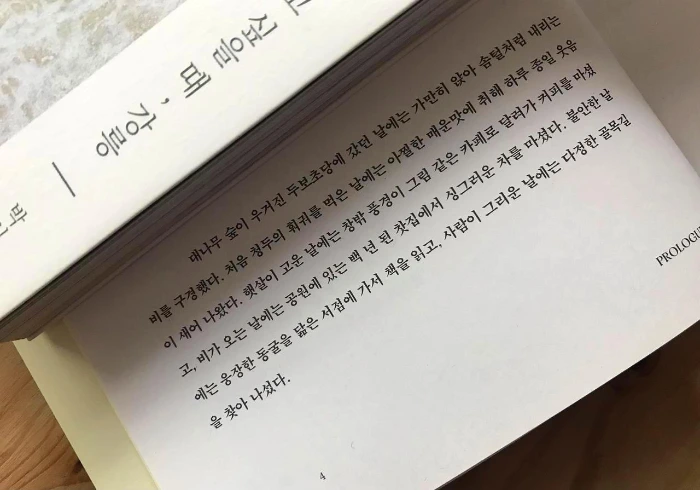 싶을 때, 강릉
대나무 숲이 우거진 두보초당에 갔던 날에는 가만히 앉아 솜털처럼 내리는
비를 구경했다. 처음 청두의 훠궈를 먹은 날에는 아찔한 매운맛에 취해 하루 종일 웃음
이 새어 나왔다. 햇살이 고운 날에는 창밖 풍경이 그림 같은 카페로 달려가 커피를 마셨
고, 비가 오는 날에는 공원에 있는 백 년 된 찻집에서 싱그러운 차를 마셨다. 불안한 날
에는 웅장한 동굴을 닮은 서점에 가서 책을 읽고, 사람이 그리운 날에는 다정한 골목길
을 찾아 나섰다.
PROLOGU
4